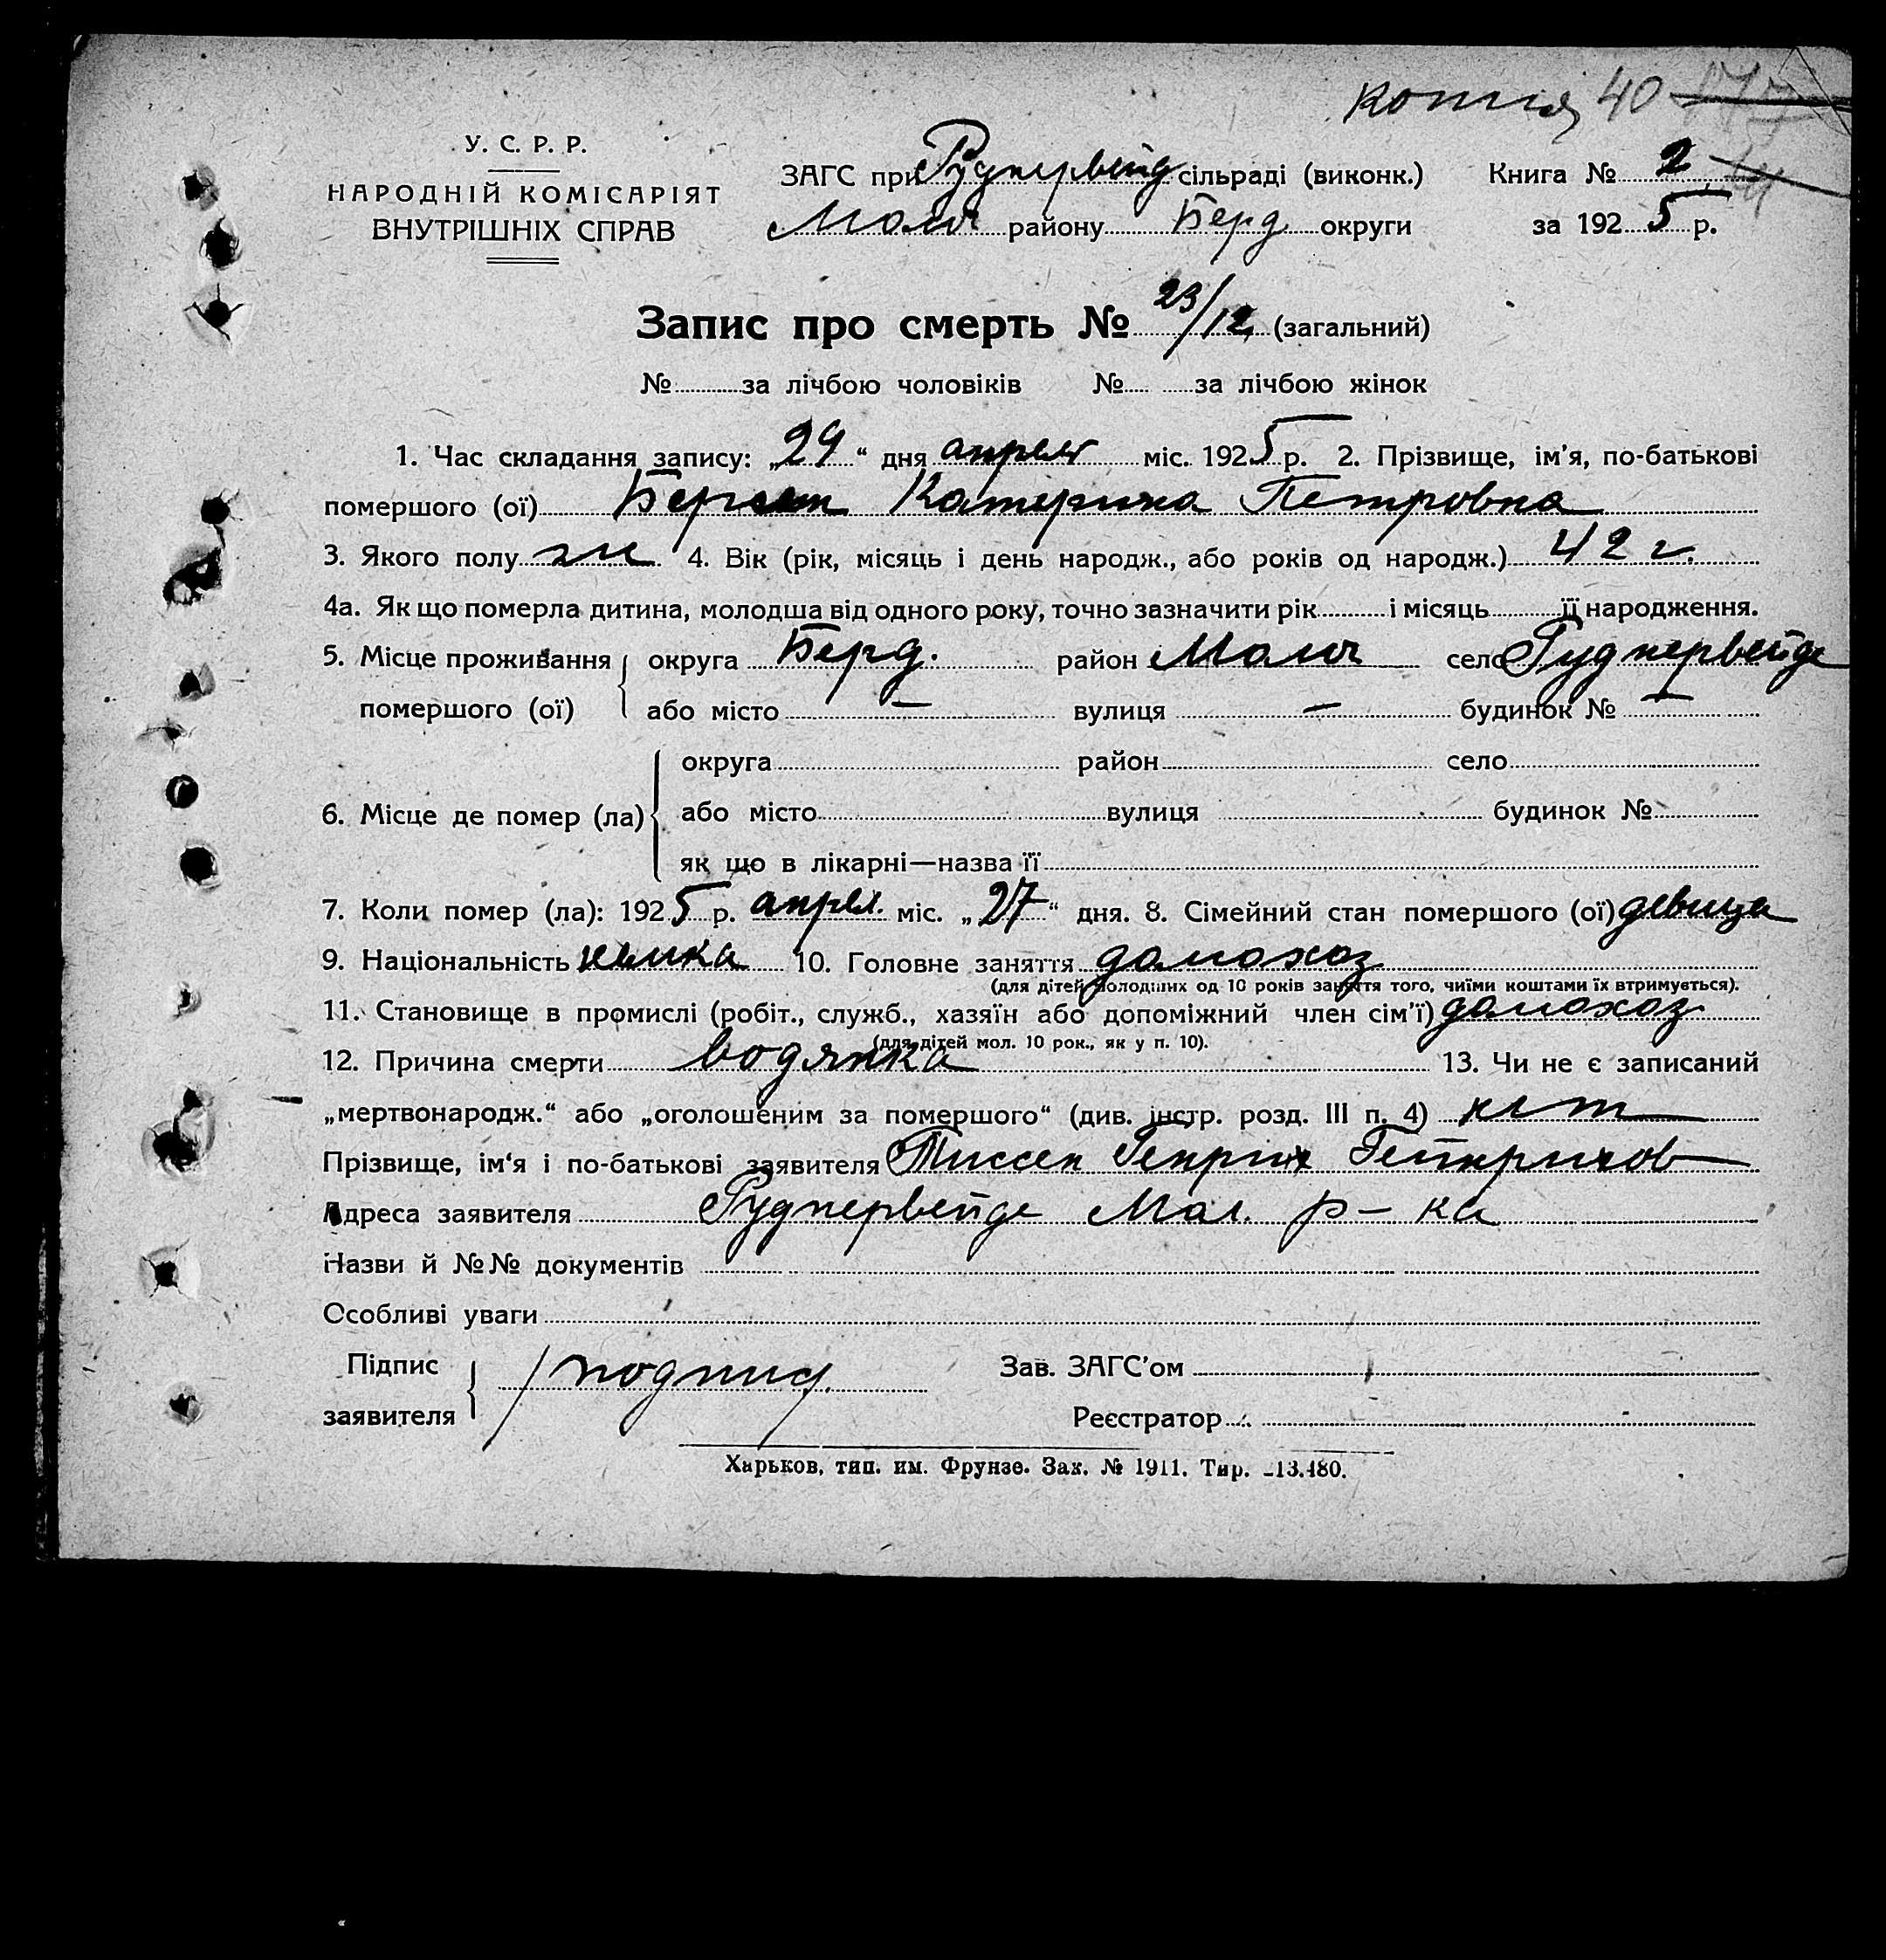 копия 40
У. С. Р. Р.
НАРОДНІЙ КОМІСАРІЯТ
ВНУТРІШНІХ СПРАВ
ЗАГС при Руднервейд сільраді (виконк.) Книга № 2
Молоч району Берд округи за 1925 р.
Запис про смерть № 23/12 (загальний)
№ за лічбою чоловіків № за лічбою жінок
1. Час складання запису: „29“ дня апреля міс. 1925 р. 2. Прізвище, ім'я, по-батькові
помершого (ої) Катерина Петровна
3. Якого полу ж 4. Вік (рік, місяць і день народж., або років од народж.) 42 г.
4а. Як що померла дитина, молодша від одного року, точно зазначити рік і місяць її народження.
5. Місце проживання округа Берд. район Молоч село Руднервейде
помершого (ої) або місто — вулиця — будинок № —
округа район село
6. Місце де помер (ла) або місто вулиця будинок №
як що в лікарні—назва її
7. Коли помер (ла): 1925 р. апрел. міс. „27“ дня. 8. Сімейний стан помершого (ої) девица
9. Національність немка 10. Головне заняття домохоз
(для дітей молодших од 10 років заняття того, чиїми коштами їх втримується).
11. Становище в промислі (робіт., служб., хазяїн або допоміжний член сім'ї) домохоз
(для дітей мол. 10 рок., як у п. 10).
12. Причина смерти водянка 13. Чи не є записаний
„мертвонародж.“ або „оголошеним за помершого“ (див. інстр. розд. III п. 4) нет
Прізвище, ім'я і по-батькові заявителя Тиссен Генрих Гейнрихов
Адреса заявителя Руднервейде Мол. р-на
Назви й №№ документів
Особливі уваги
Підпис
заявителя /подпись/
Зав. ЗАГС'ом
Реєстратор
Харьков, тип. им. Фрунзе. Зак. № 1911. Тир. 13.480.